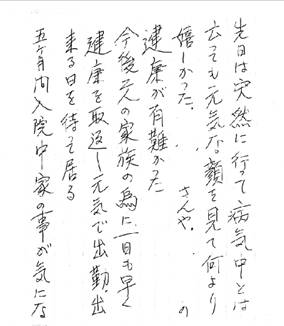 先日は突然に行って病気中とは
云っても元気な顔を見て何より
嬉しかった、 さんや、 の
健康が有難かった
今後元の家族の為に、一日も早く
健康を取返し元気で出勤出
来る日を待って居る
五ヶ月間入院中家の事が気にな